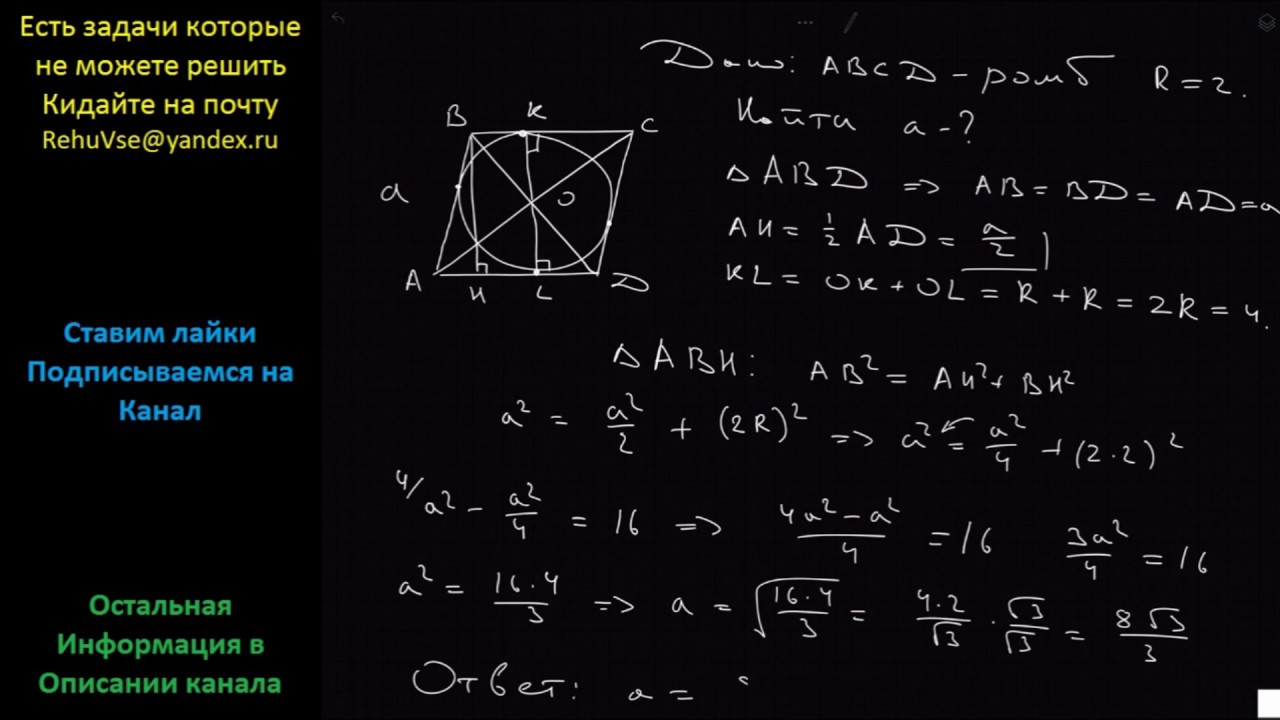 Есть задачи которые
не можете решить
Кидайте на почту
RehuVse@yandex.ru
Ставим лайки
Подписываемся на
Канал
Остальная
Информация в
Описании канала
Дано: ABCD - ромб R = 2.
Найти a - ?
B K C
a O
A H L D
△ABD => AB = BD = AD = a
AH = 1/2 AD = a/2
KL = OK + OL = R + R = 2R = 4.
△ABH: AB² = AH² + BH²
a² = a²/2 + (2R)² => a² = a²/4 + (2·2)²
4/ a² - a²/4 = 16 => (4a² - a²)/4 = 16 3a²/4 = 16
a² = 16·4/3 => a = √(16·4/3) = 4·2/√3 · √3/√3 = 8√3/3
Ответ: a =